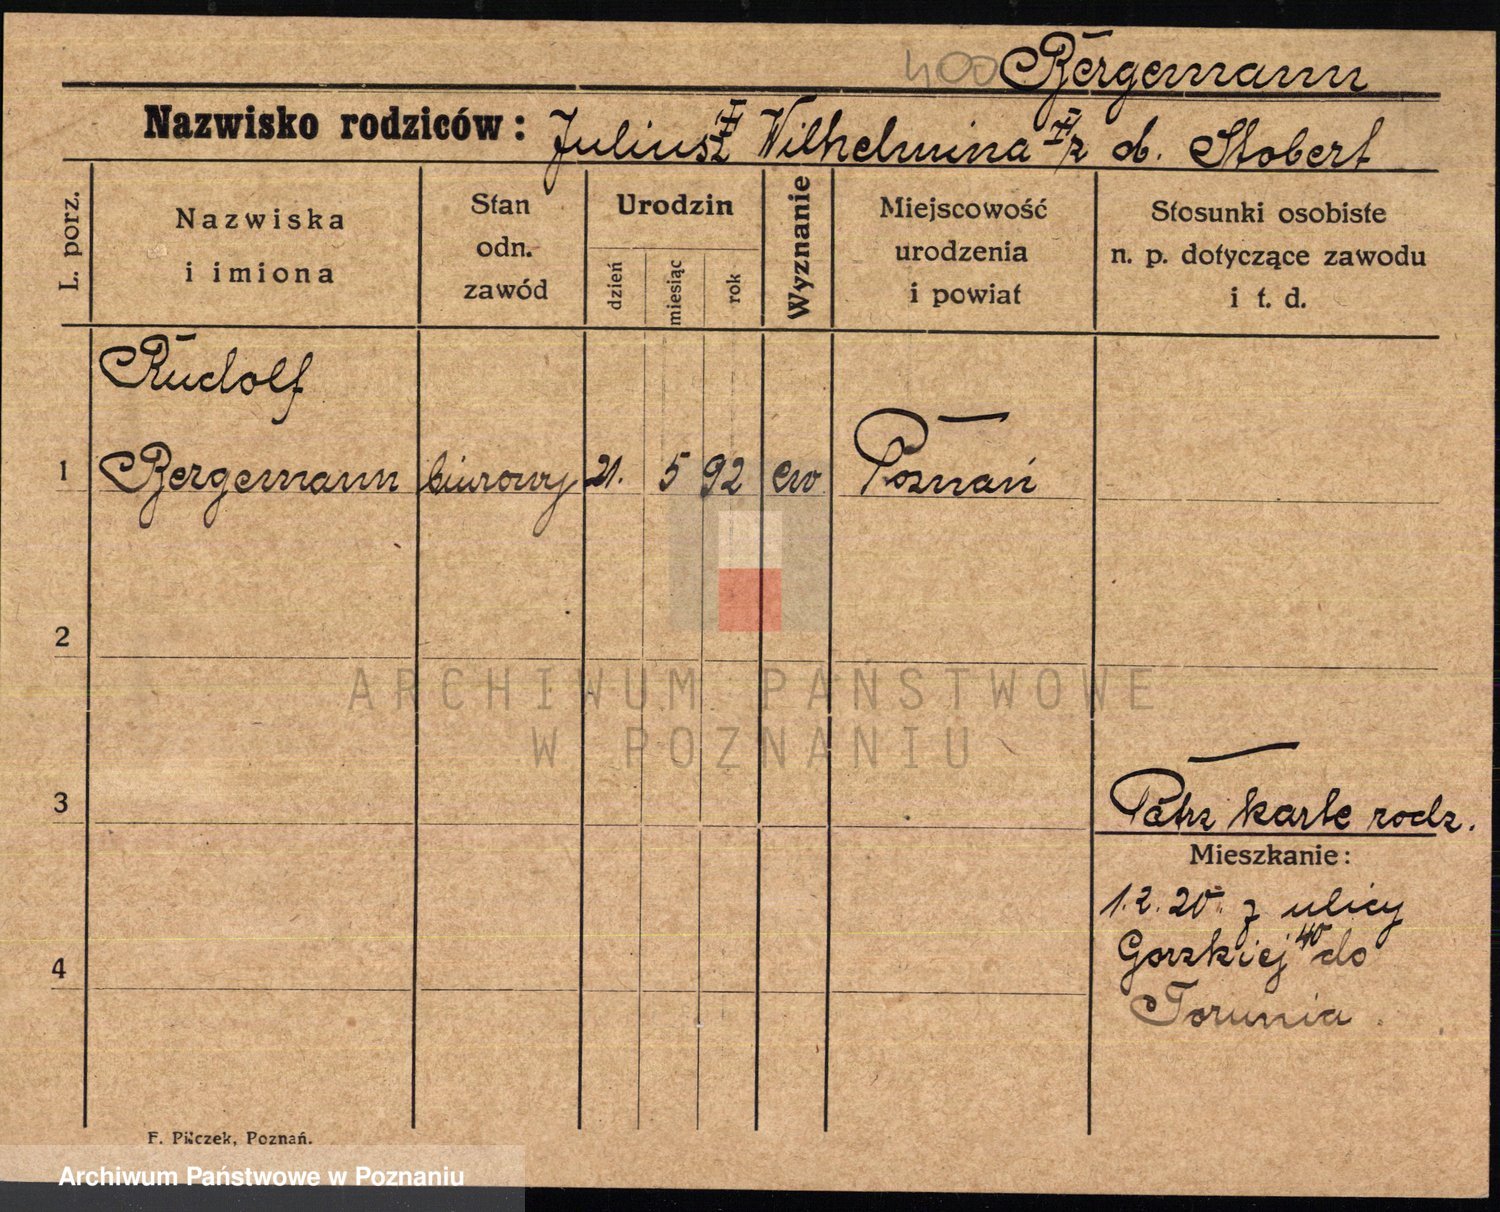 400 Bergemann
Nazwisko rodziców: Juliusz Wilhelmina z d. Stobert
L. porz.
Nazwiska
i imiona
Stan
odn.
zawód
Urodzin
dzień
miesiąc
rok
Wyznanie
Miejscowość
urodzenia
i powiat
Stosunki osobiste
n. p. dotyczące zawodu
i t. d.
Rudolf
1 Bergemann biurowy 21. 5 92 ew Poznań
2
ARCHIWUM PAŃSTWOWE
W POZNANIU
3 Patrz karte rodz.
Mieszkanie:
1.2.20. z ulicy
Gorzkiej 40 do
4
Torunia.
F. Pilczek, Poznań.
Archiwum Państwowe w Poznaniu